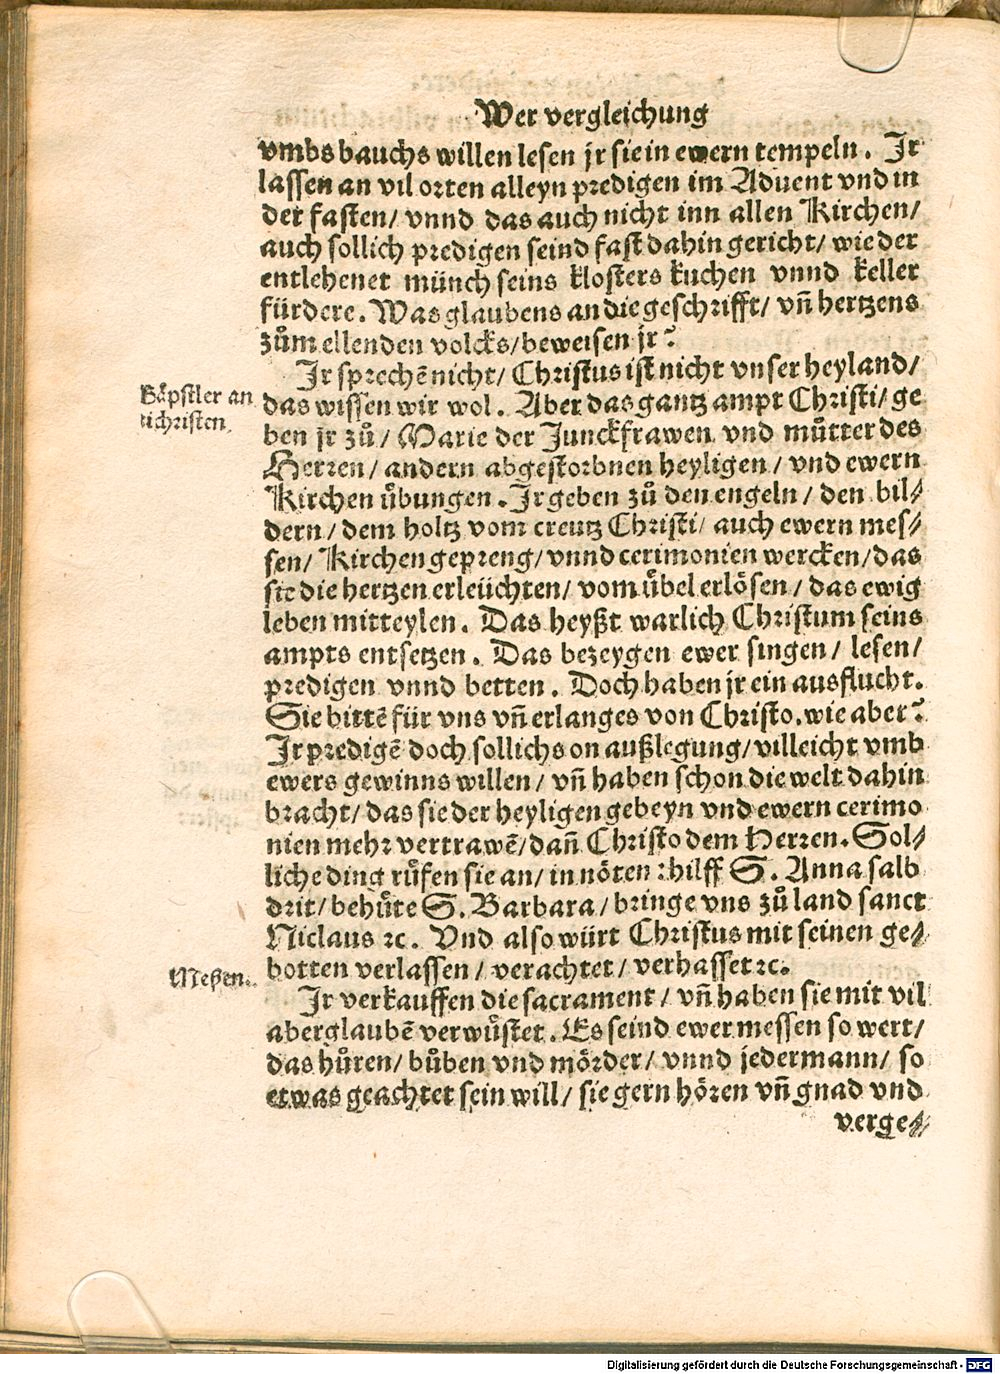 Wer vergleichung
vmbs bauchs willen lesen jr sie in ewern tempeln. Jr
lassen an vil orten alleyn predigen im Aduent vnd in
der fasten/ vnnd das auch nicht inn allen Kirchen/
auch sollich predigen seind fast dahin gericht/ wie der
entlehenet münch seins klosters kuchen vnnd keller
fürdere. Was glaubens an die geschrifft/ vn̄ hertzens
zům ellenden volcks/ beweisen jr?
Jr sprechē nicht/ Christus ist nicht vnser heyland/
Bäpstler an
das wissen wir wol. Aber das gantz ampt Christi/ ge
tichristen.
ben jr zů/ Marie der Junckfrawen vnd můtter des
Herren/ andern abgestorbnen heyligen/ vnd ewern
Kirchen übungen. Jr geben zů den engeln/ den bil⸗
dern/ dem holtz vom creutz Christi/ auch ewern mes⸗
sen/ Kirchen gepreng/ vnnd cerimonien wercken/ das
sie die hertzen erleüchten/ vom übel erlösen/ das ewig
leben mitteylen. Das heyßt warlich Christum seins
ampts entsetzen. Das bezeygen ewer singen/ lesen/
predigen vnnd betten. Doch haben jr ein ausflucht.
Sie bittē für vns vn̄ erlanges von Christo. wie aber?
Jr predigē doch sollichs on außlegung/ villeicht vmb
ewers gewinns willen/ vn̄ haben schon die welt dahin
bracht/ das sie der heyligen gebeyn vnd ewern cerimo
nien mehr vertrawē/ dan̄ Christo dem Herren. Sol⸗
liche ding růfen sie an/ in nöten: hilff S. Anna salb
drit/ behüte S. Barbara/ bringe vns zů land sanct
Niclaus ꝛc. Vnd also würt Christus mit seinen ge⸗
botten verlassen/ verachtet/ verhasset ꝛc.
Meßen.
Jr verkauffen die sacrament/ vn̄ haben sie mit vil
aberglaubē verwüstet. Es seind ewer messen so wert/
das hůren/ bůben vnd mörder/ vnnd jedermann/ so
etwas geachtet sein will/ sie gern hören vn̄ gnad vnd
verge⸗
Digitalisierung gefördert durch die Deutsche Forschungsgemeinschaft - DFG